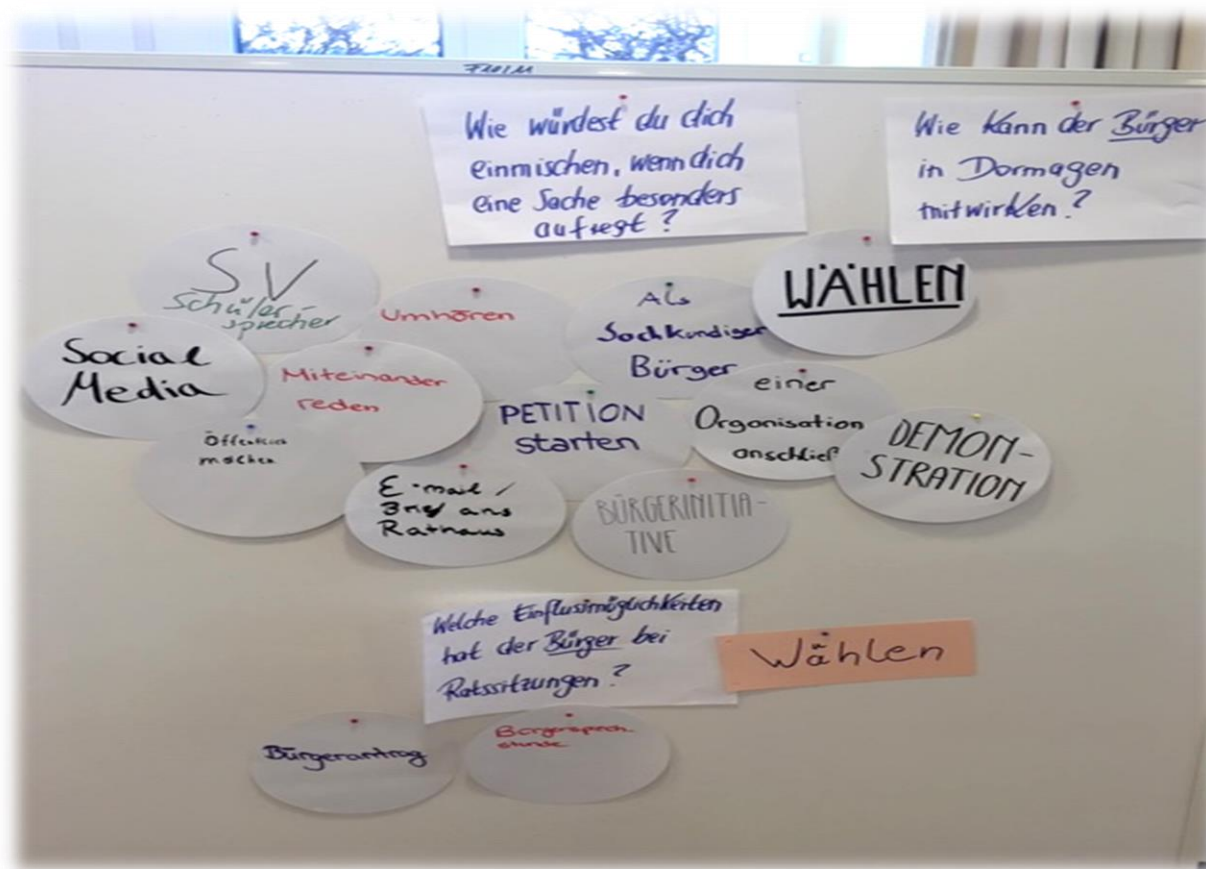 Wie würdest du dich
einmischen, wenn dich
eine Sache besonders
aufregt?
Wie kann der Bürger
in Dormagen
mitwirken?
SV
Schüler-
sprecher
Umhören
Als
Sachkundiger
Bürger
WÄHLEN
Social
Media
Miteinander
reden
PETITION
starten
einer
Organisation
anschließ
DEMON-
STRATION
Öffentlich
machen
E-mail /
Brief ans
Rathaus
BÜRGERINITIA-
TIVE
Welche Einflussmöglichkeiten
hat der Bürger bei
Ratssitzungen?
Wählen
Bürgerantrag
Bürgersprech
stunde